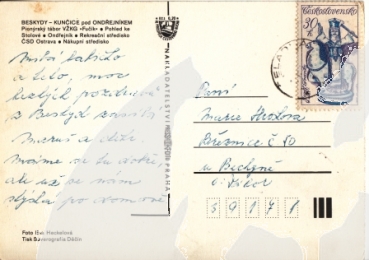 BESKYDY – KUNČICE pod ONDŘEJNÍKEM
Pionýrský tábor VŽKG »Fučík« • Pohled ke
Stolové • Ondřejník • Rekreační středisko
ČSD Ostrava • Nákupní středisko
Milá babičko
a dědo, moc
hezkých pozdravů
z Beskyd posílá
a děti.
Máme se tu dobře,
ale už se nám
stýská po domově
NAKLADATELSTVÍ
PRAHA
Československo
30
Paní
Marie
Březnice č 80
u Bechyně
o. Tábor
39171
Foto
Tisk Severografia Děčín